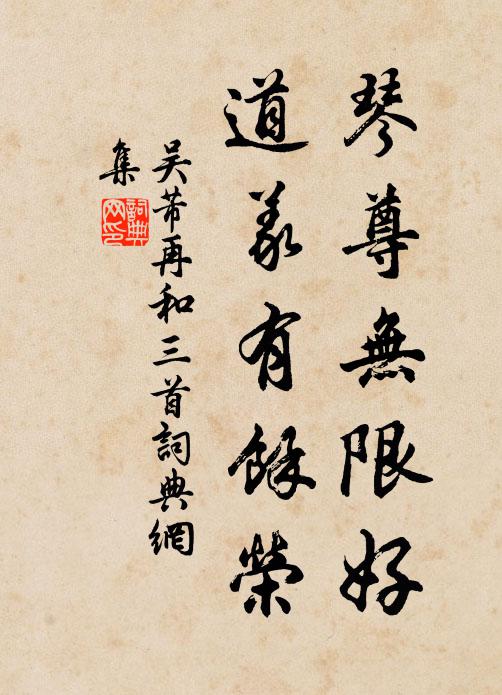 琴尊無限好
道義有餘榮
吴芾再和三首詞典網
集
詞典
网印